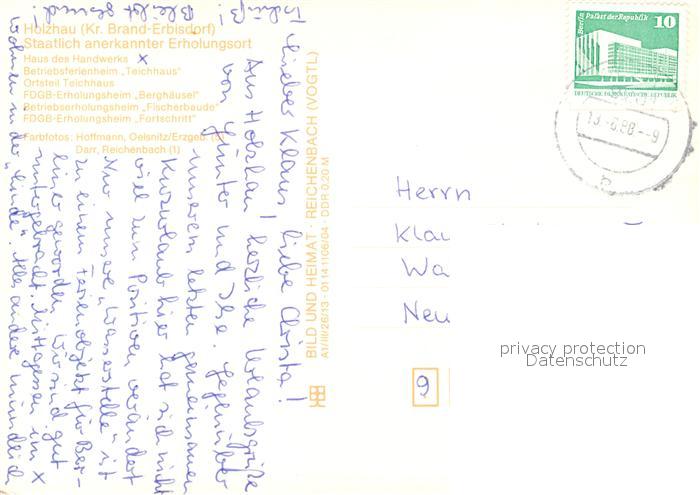 Holzhau (Kr. Brand-Erbisdorf)
Staatlich anerkannter Erholungsort
Haus des Handwerks x
Betriebsferienheim „Teichhaus"
Ortsteil Teichhaus
FDGB-Erholungsheim „Berghäusel"
Betriebserholungsheim „Fischerbaude"
FDGB-Erholungsheim „Fortschritt"
Farbfotos: Hoffmann, Oelsnitz/Erzgeb. (5)
Darr, Reichenbach (1)
Lieber Klaus! liebe Christa!
Aus Holzhau herzliche Urlaubsgrüße
von Günter und Ilse. Gegenüber
unserem letzten gemeinsamen
Kurzurlaub hier hat sich nicht
viel zum Positiven verändert
Nur unsere „Wasserstelle" ist
zu einem Ferienobjekt für Ber-
liner geworden. Wir sind gut
untergebracht. Mittagessen im x
wohnen in der „Linde". Alles andere mündlich
Bleibt gesund!
Tschüß!
BILD UND HEIMAT · REICHENBACH (VOGTL)
A1/III/26/13 · 01 14 11 06/04 · DDR 0,20 M
Berlin, Palast der Republik
10
DEUTSCHE DEMOKRATISCHE REPUBLIK
13.-6.88.--9
Herrn
Klau
Wa
Neu
9
privacy protection
Datenschutz